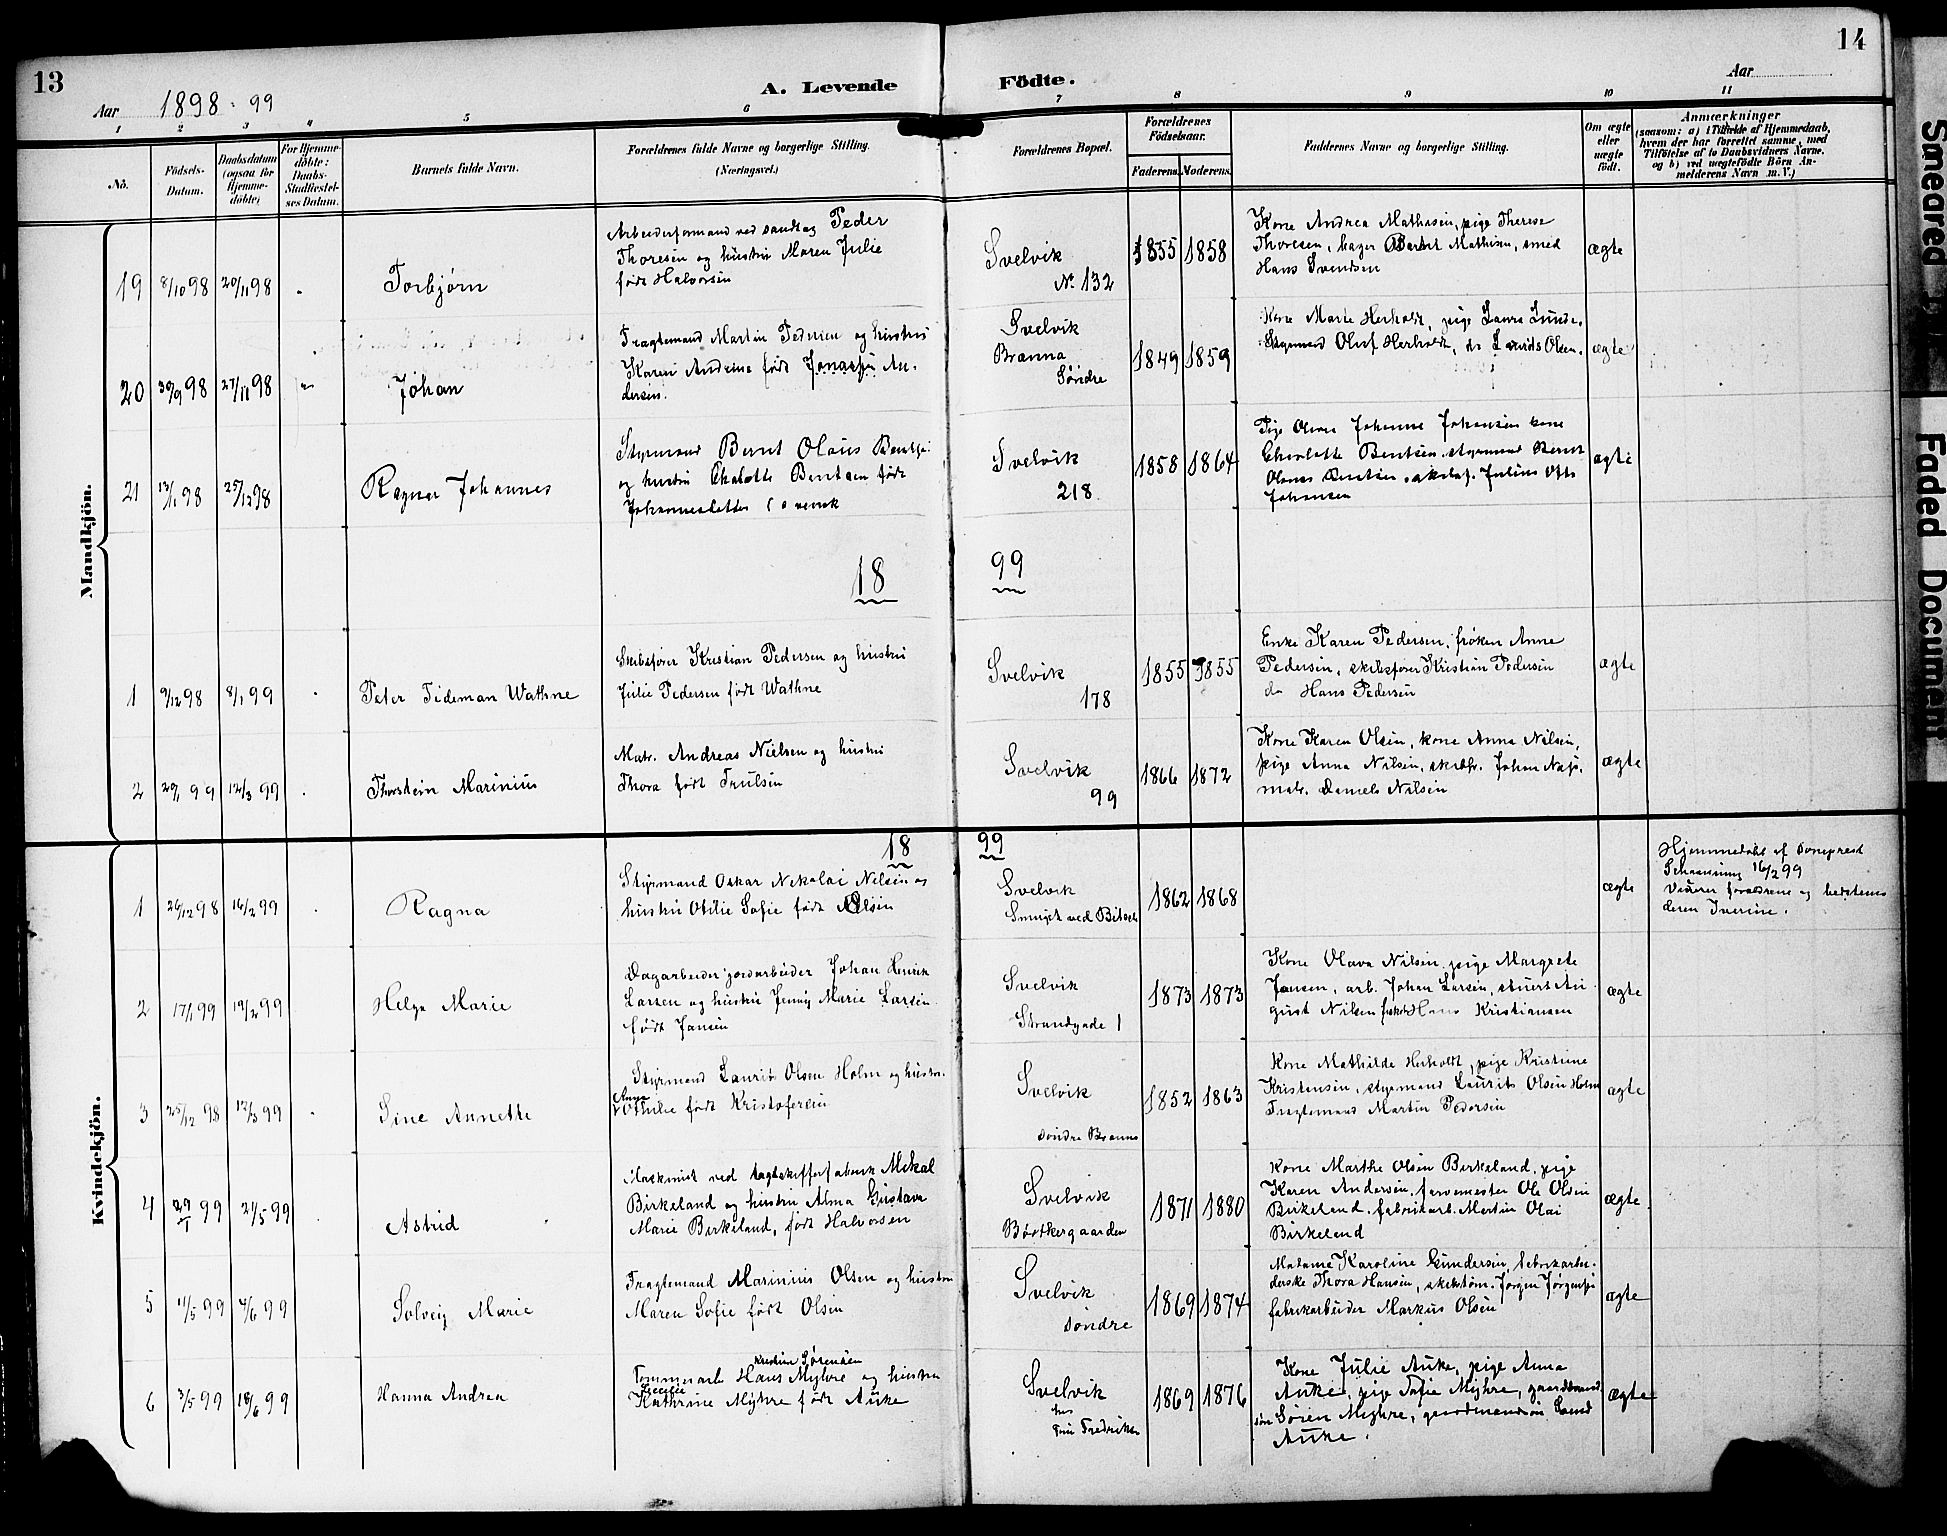 13
14
A. Levende Födte.
Aar 1898-99
Aar
1 2 3 4 5 6 7 8 9 10 11
No.
Födsels-Datum.
Daabsdatum (ogsaa for Hjemme-döbte)
For Hjemme-döbte: Daabs-Stadfæstel-ses Datum.
Barnets fulde Navn.
Forældrenes fulde Navne og borgerlige Stilling.
(Næringsvei.)
Forældrenes Bopæl.
Forældrenes Födselsaar.
Faderens. Moderens.
Faddernes Navne og borgerlige Stilling.
Om ægte eller uægte födt.
Anmærkninger
(saasom: a) i Tilfælde af Hjemmedaab,
hvem der har forrettet samme, med
Tilföielse af to Daabsvidners Navne.
og b) ved uægtefödte Börn An-
melderens Navn m. V.)
Mandkjön.
19 8/10 98 20/11 98 Torbjørn
Arbeiderformand ved sandtag Peder
Thoresen og hustru Maren Julie
født Halvorsen
Svelvik
No 132
1855 1858
Kone Andrea Mathisen, pige Therese
Thoresen, bager Bernt Mathisen, smed
Hans Svendsen
ægte
20 30/9 98 27/11 98 Johan
Fragtemand Martin Pedersen og hustru
Karen Andrine født Jonassen An-
dersen.
Svelvik
Brænna
Søndre
1849 1859
Kone Marie Herholdt, pige Laura Lunde,
Styrmand Oluf Herholdt, do Laurids Olsen.
ægte
21 13/11 98 25/12 98 Ragnar Johannes
Styrmand Bernt Olaus Bentse
og hustru Chalotte Bentsen født
Johannesdatter (svensk
Svelvik
218
1858 1864
Pige Olava Johanne Johansen kone
Charlotte Bentsen, styrmand Bernt
Olaus Bentsen, skibsf. Julius Otto
Johansen
ægte
18 99
1 9/12 98 8/1 99 Peter Tideman Wathne
Skibsfører Kristian Pedersen og hustru
Julie Pedersen født Wathne
Svelvik
178
1855 1855
Enke Karen Pedersen, frøken Anne
Pedersen, skibsfører Kristian Pedersen
do Hans Pedersen
ægte
2 29/1 99 12/3 99 Thorstein Marinius
Matr. Andreas Nielsen og hustru
Thora født Trulsen
Svelvik
99
1866 1872
Kone Karen Olsen, kone Anna Nilsen,
pige Anna Nilsen, skibsf. Johan
matr. Daniels Nilsen
ægte
18 99
Kvindekjön.
1 26/12 98 16/2 99 Ragna
Styrmand Oskar Nikolai Nilsen og
hustru Otilie Sofie født Olsen
Svelvik
Smuget ved
1862 1868
ægte
Hjemmedøbt af Sogneprest
Schanning 16/2 99
Vidner forældrene og bedstemo-
deren Iverine.
2 17/1 99 19/2 99 Helga Marie
Dagarbeider jordarbeider Johan Henrik
Larsen og hustru Jenny Marie Larsen
født Jansen
Svelvik
Strandgade 1
1873 1873
Kone Olava Nilsen, pige Margrete
Jansen, arb. Johan Larsen, stuert Au-
gust Nilsen fisker Hans Kristiansen
ægte
3 25/12 98 12/3 99 Sine Annette
Styrmand Laurits Olsen Holm og hustru
Anna
Othilie født Kristofersen
Svelvik
søndre Brænna
1852 1863
Kone Mathilde Herholdt, pige Kristine
Kristensen, styrmand Laurits Olsen Holm
Fragtemand Martin Pedersen
ægte
4 29/1 99 21/5 99 Astrid
Maskinist ved tagskifferfabrik Mikal
Birkeland og hustru Alma Gustava
Marie Birkeland, født Halvorsen
Svelvik
Bøstkergaarden
1871 1880
Kone Marthe Olsen Birkeland, pige
Karen Andersen, farvemester Ole Olsen
Birkeland, fabrikarb. Martin Olai
Birkeland
ægte
5 11/5 99 4/6 99 Solveig Marie
Fragtemand Marinius Olsen og hustru
Maren Sofie født Olsen
Svelvik
søndre
1869 1874
Madame Karoline Gundersen, fabrikarbei-
derske Thora Hansen, skibstøm. Jørgen Jørgensen
fabrikarbeider Markus Olsen
ægte
6 3/5 99 18/6 99 Hanna Andrea
Kristian Sørensen
Tommerarb Hans Myhre og hustru
Kathrine Myhre født Auke
Svelvik
hos
Fredriksen
1869 1876
Kone Julie Auke, pige Anna
Auke, pige Sofie Myhre, gaardmand
søn Søren Myhre, gaardmandsøn
Auke.
ægte
Smeared
Faded Document